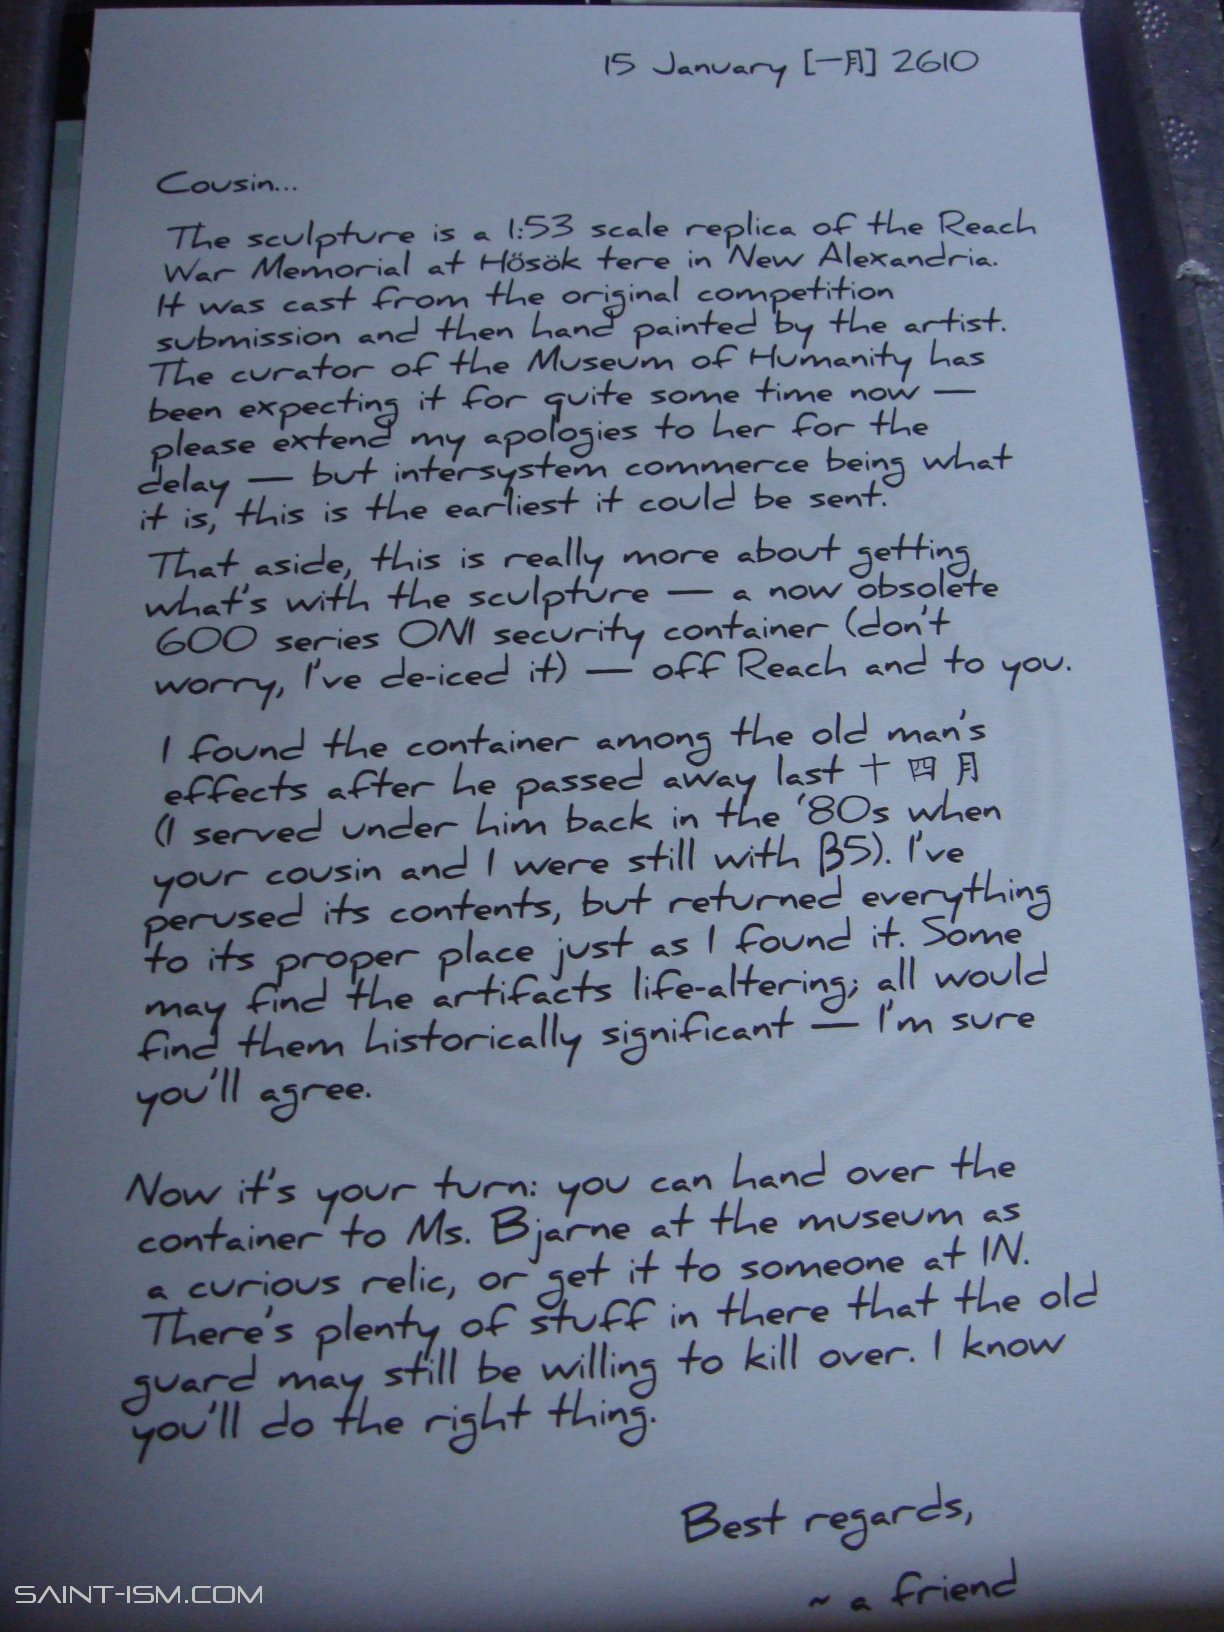 15 January [一月] 2610
Cousin...
The sculpture is a 1:53 scale replica of the Reach
War Memorial at Hősök tere in New Alexandria.
It was cast from the original competition
submission and then hand painted by the artist.
The curator of the Museum of Humanity has
been expecting it for quite some time now —
please extend my apologies to her for the
delay — but intersystem commerce being what
it is, this is the earliest it could be sent.
That aside, this is really more about getting
what's with the sculpture — a now obsolete
600 series ONI security container (don't
worry, I've de-iced it) — off Reach and to you.
I found the container among the old man's
effects after he passed away last 十四月
(I served under him back in the '80s when
your cousin and I were still with β5). I've
perused its contents, but returned everything
to its proper place just as I found it. Some
may find the artifacts life-altering; all would
find them historically significant — I'm sure
you'll agree.
Now it's your turn: you can hand over the
container to Ms. Bjarne at the museum as
a curious relic, or get it to someone at IN.
There's plenty of stuff in there that the old
guard may still be willing to kill over. I know
you'll do the right thing.
Best regards,
~ a friend
SAINT-ISM.COM